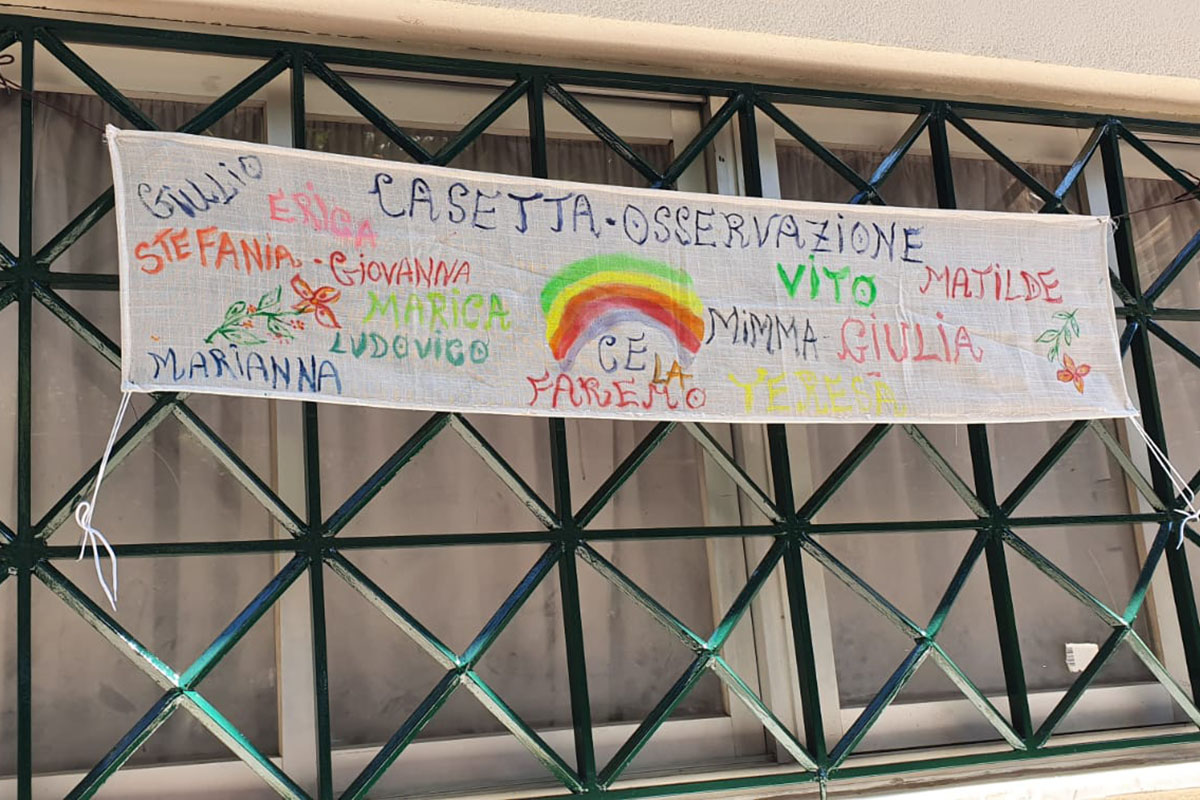 GIULIO
ERICA
CASETTA-OSSERVAZIONE
STEFANIA-GIOVANNA
VITO
MATILDE
MARICA
MIMMA-GIULIA
LUDOVICO
MARIANNA
CE LA
FAREMO
TERESA